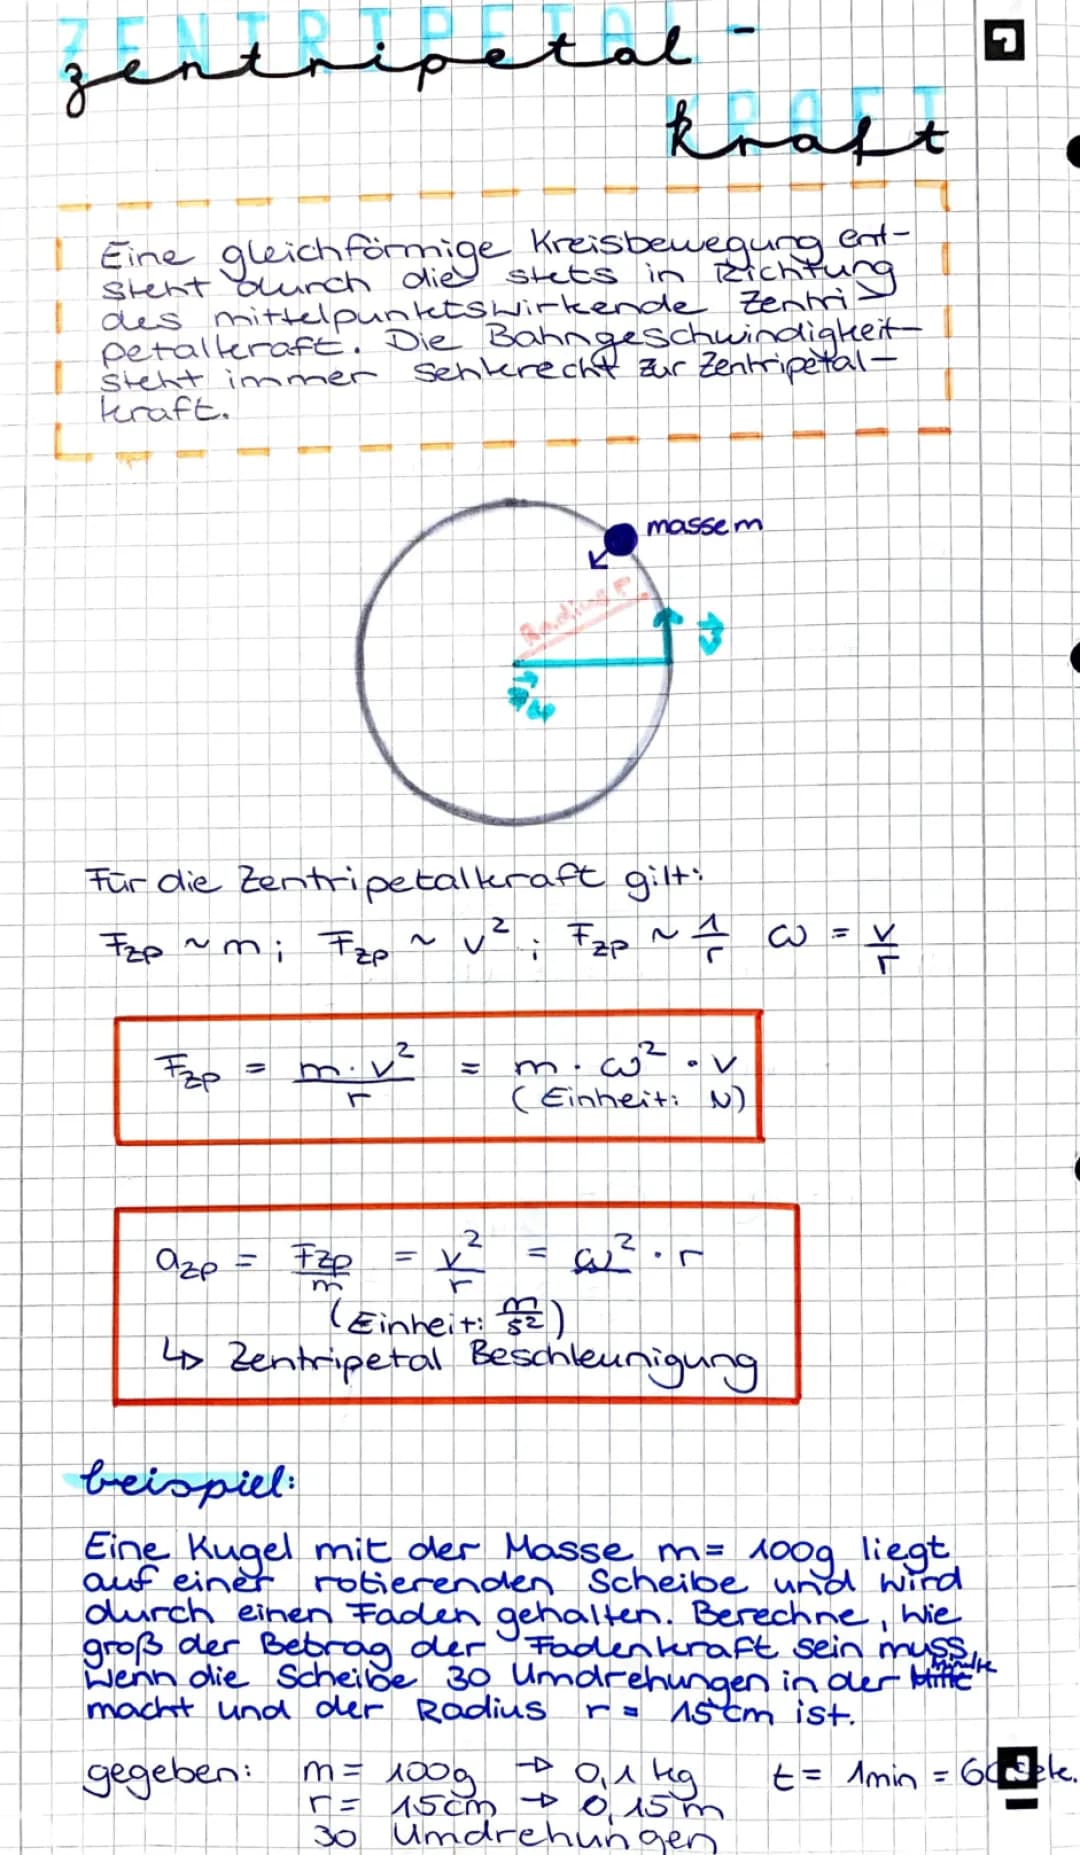 ZENTRIPETAL
zentripetal-
KRAFT
kraft
Eine gleichförmige Kreisbewegung ent-
steht durch die stets in Richtung
des mittelpunktswirkende Zentri
petalkraft. Die Bahngeschwindigkeit
steht immer senkrecht zur Zentripetal-
kraft.
masse m
Radius r
v
Für die Zentripetalkraft gilt:
Fzp ~ m; Fzp ~ v²; Fzp ~ 1/r ω = v/r
Fzp = m·v²/r = m·ω²·v
(Einheit: N)
azp = Fzp/m = v²/r = ω²·r
(Einheit: m/s²)
↳ Zentripetal Beschleunigung
beispiel:
Eine Kugel mit der Masse m= 100g liegt
auf einer rotierenden Scheibe und wird
durch einen Faden gehalten. Berechne, wie
groß der Betrag der Fadenkraft sein muss,
wenn die Scheibe 30 Umdrehungen in der Minute
macht und der Radius r = 15cm ist.
gegeben: m= 100g → 0,1 kg t= 1min = 60sek.
r= 15cm → 0,15m
30 Umdrehungen